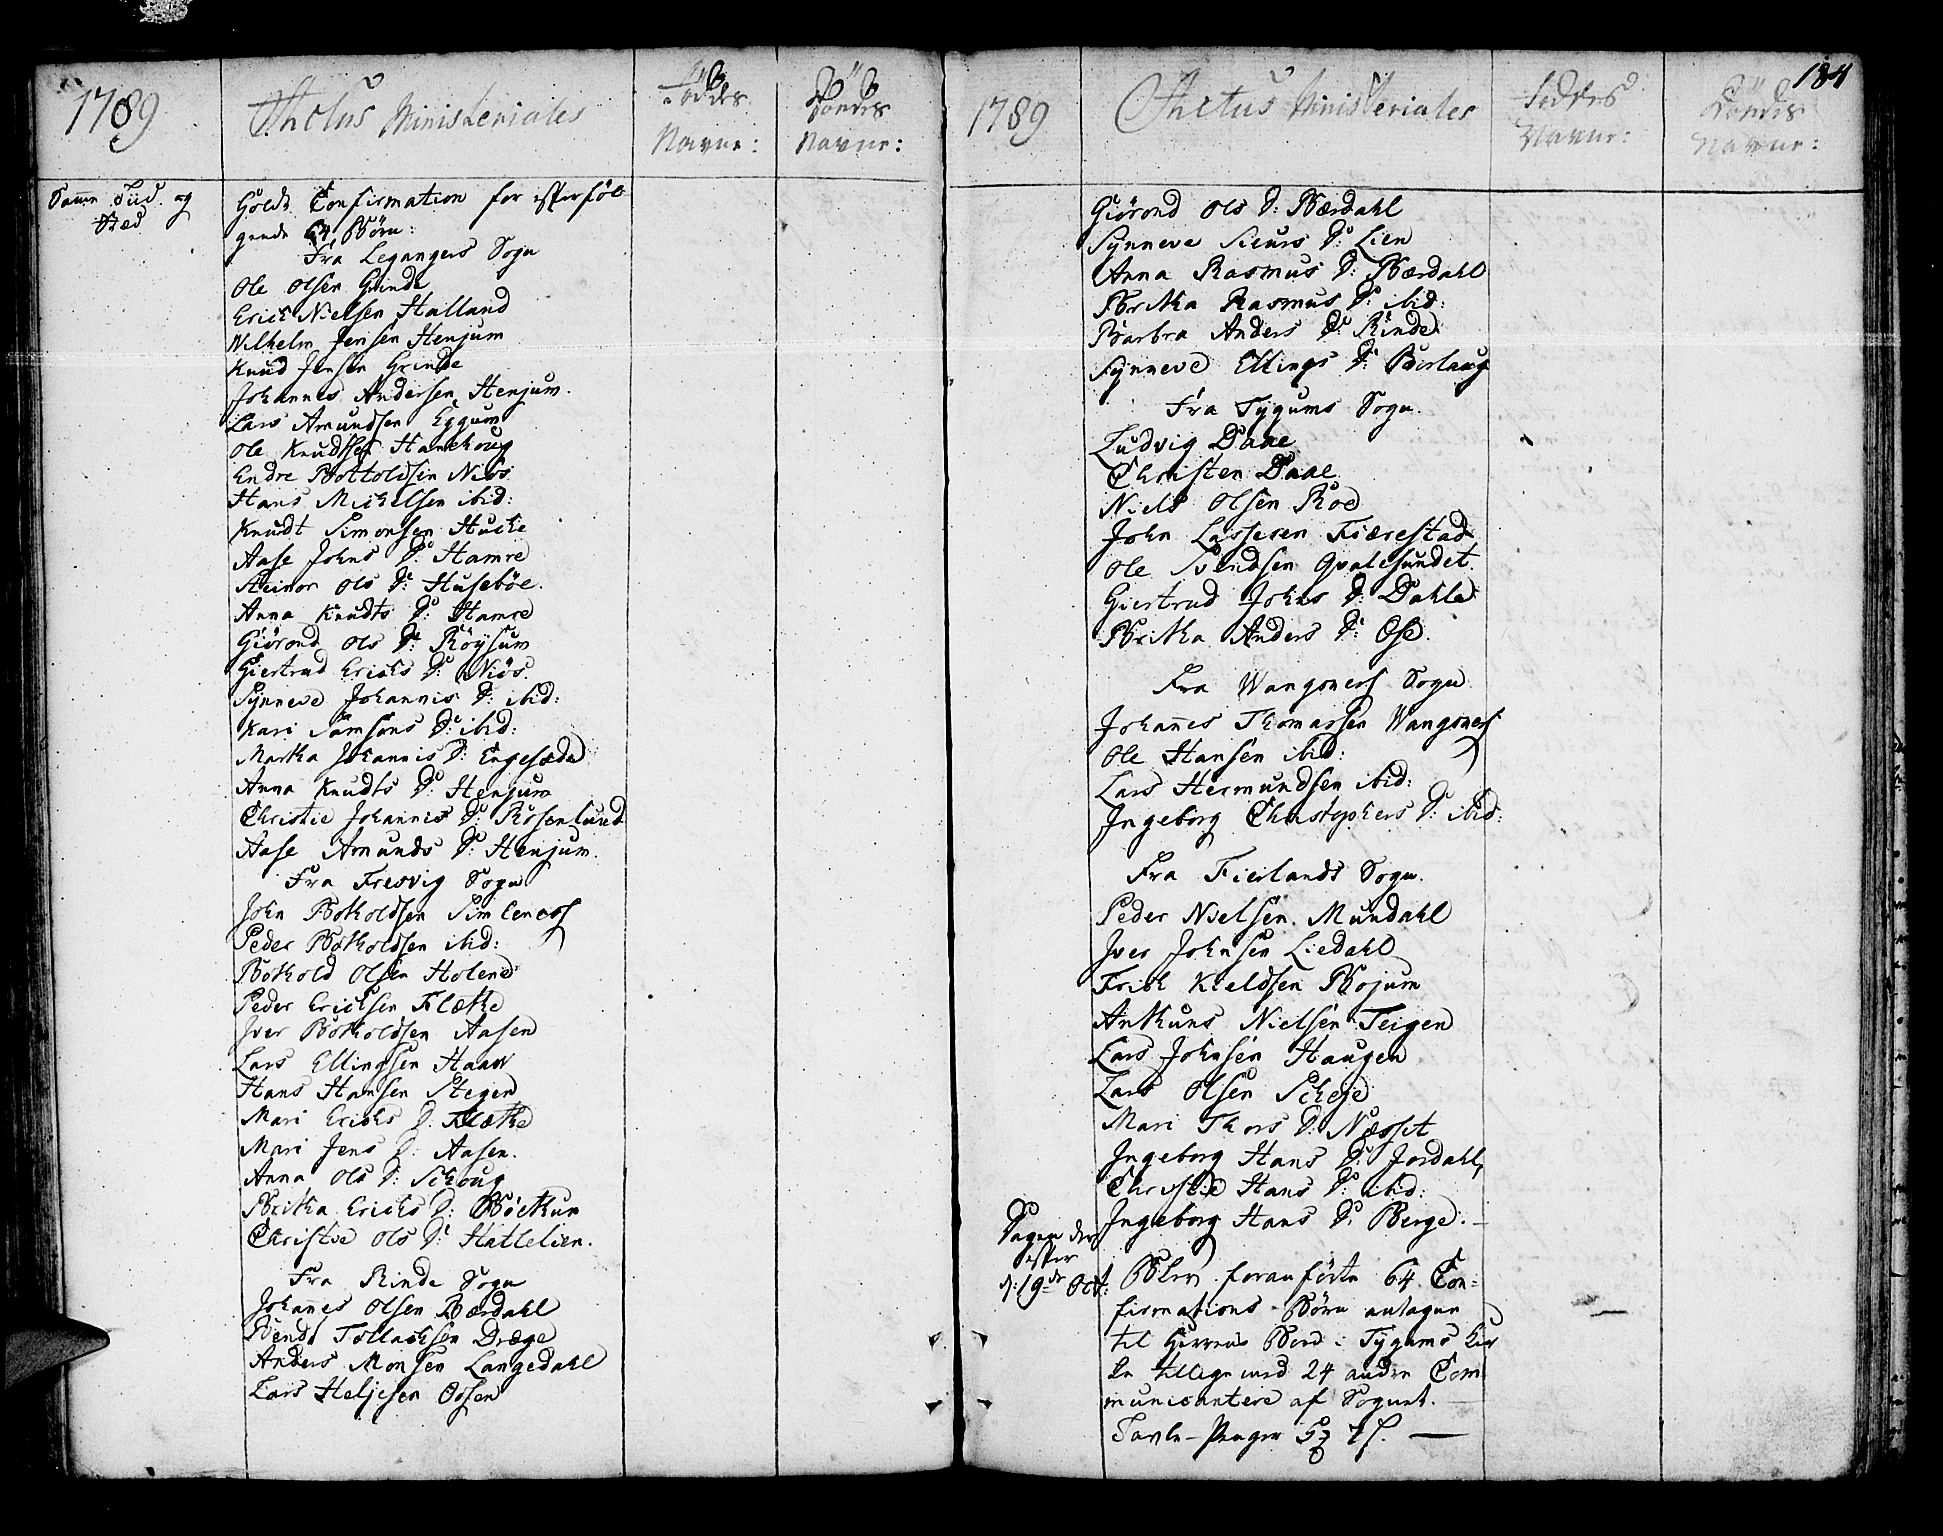 1789
Actus Ministeriales
Föddes
Navne:
Döndes
Navne:
Samme Tiid og
Stæd
Holdt Confirmation for efterföl
gende 64 Börn:
Fra Legangers Sogn
Ole Olsen Grinde
Erich Nielsen Halland
Wilhelm Jensen Henjum
Knud Jensen Grinde
Johannes Andersen Henjum.
Lars Amundsen Eggum
Ole Knudsen Hamehoug
Endre Bottoldsen Niös
Hans Michelsen ibid:
Knudt Simonsen Hucke
Aase Johns D: Hamre
Ols D: Huseböe.
Anna Knudts D: Hamre
Giörond Ols D: Röysum
Giertrud Erichs D: Niös.
Synneve Johannis D: ibid:
Kari Samsons D: ibid:
Martha Johannis D: Engesæde
Anna Knudts D: Henjum
Christie Johannis D: Rosenlund
Aase Amunds D: Henjum.
Fra Fresvig Sogn
John Botholdsen Simlenes
Peder Botholdsen ibid:
Bothold Olsen Holene
Peder Erichsen Flæthe
Iver Botholdsen Aasen
Lars Ellingsen Haaw
Hans Hansen Stegen
Mari Erichs D. Flæthe
Mari Jens D: Aasen.
Anna Ols D: Schoug
Britha Erichs D: Böethun
Christie Ols D: Hattelien.
Fra Rinde Sogn
Johannes Olsen Bærdahl
Bendt Tollachsen Dræge
Anders Monsen Langedahl
Lars Heljesen Ossen
184
1789
Actus Ministeriales
Föddes
Navne:
Döndes
Navne:
Giörond Ols D: Bærdahl
Synneve Siurs D: Lien
Anna Rasmus D: Bærdahl
Britha Rasmus D: ibid:
Barbra Anders D: Rinde
Synneve Ellings D: Borlaug
Fra Tygums Sogn.
Ludvig Daae
Christen Daae
Niels Olsen Roe
John Lassesen Fiærestad
Ole Svendsen Qvalesundet.
Giertrud Johns D: Dahle
Britha Anders D: Ose.
Fra Wangsnes Sogn
Johannes Thomassen Wangsnes
Ole Hansen ibid:
Lars Hermundsen ibid:
Ingeborg Christophers D: ibid:
Fra Fierlands Sogn.
Peder Nielsen Mundahl
Iver Johnsen Liedahl
Frich Kieldsen Bojum
Anthuns Nielsen Teigen
Lars Johnsen Haugen
Lars Olsen Schege
Mari Thors D: Næsset
Ingeborg Hans D: Jordahl,
Christie Hans D: ibid:
Ingeborg Hans D: Berge.
Dagen der
efter
d: 19de Oct:
Blev foranförte 64 Con=
firmations-Börn antagen
til Herrens Bord i Tygums Kir
ke tillige med 24 andre Com
municantere af Sognet.
Tavle-Penger